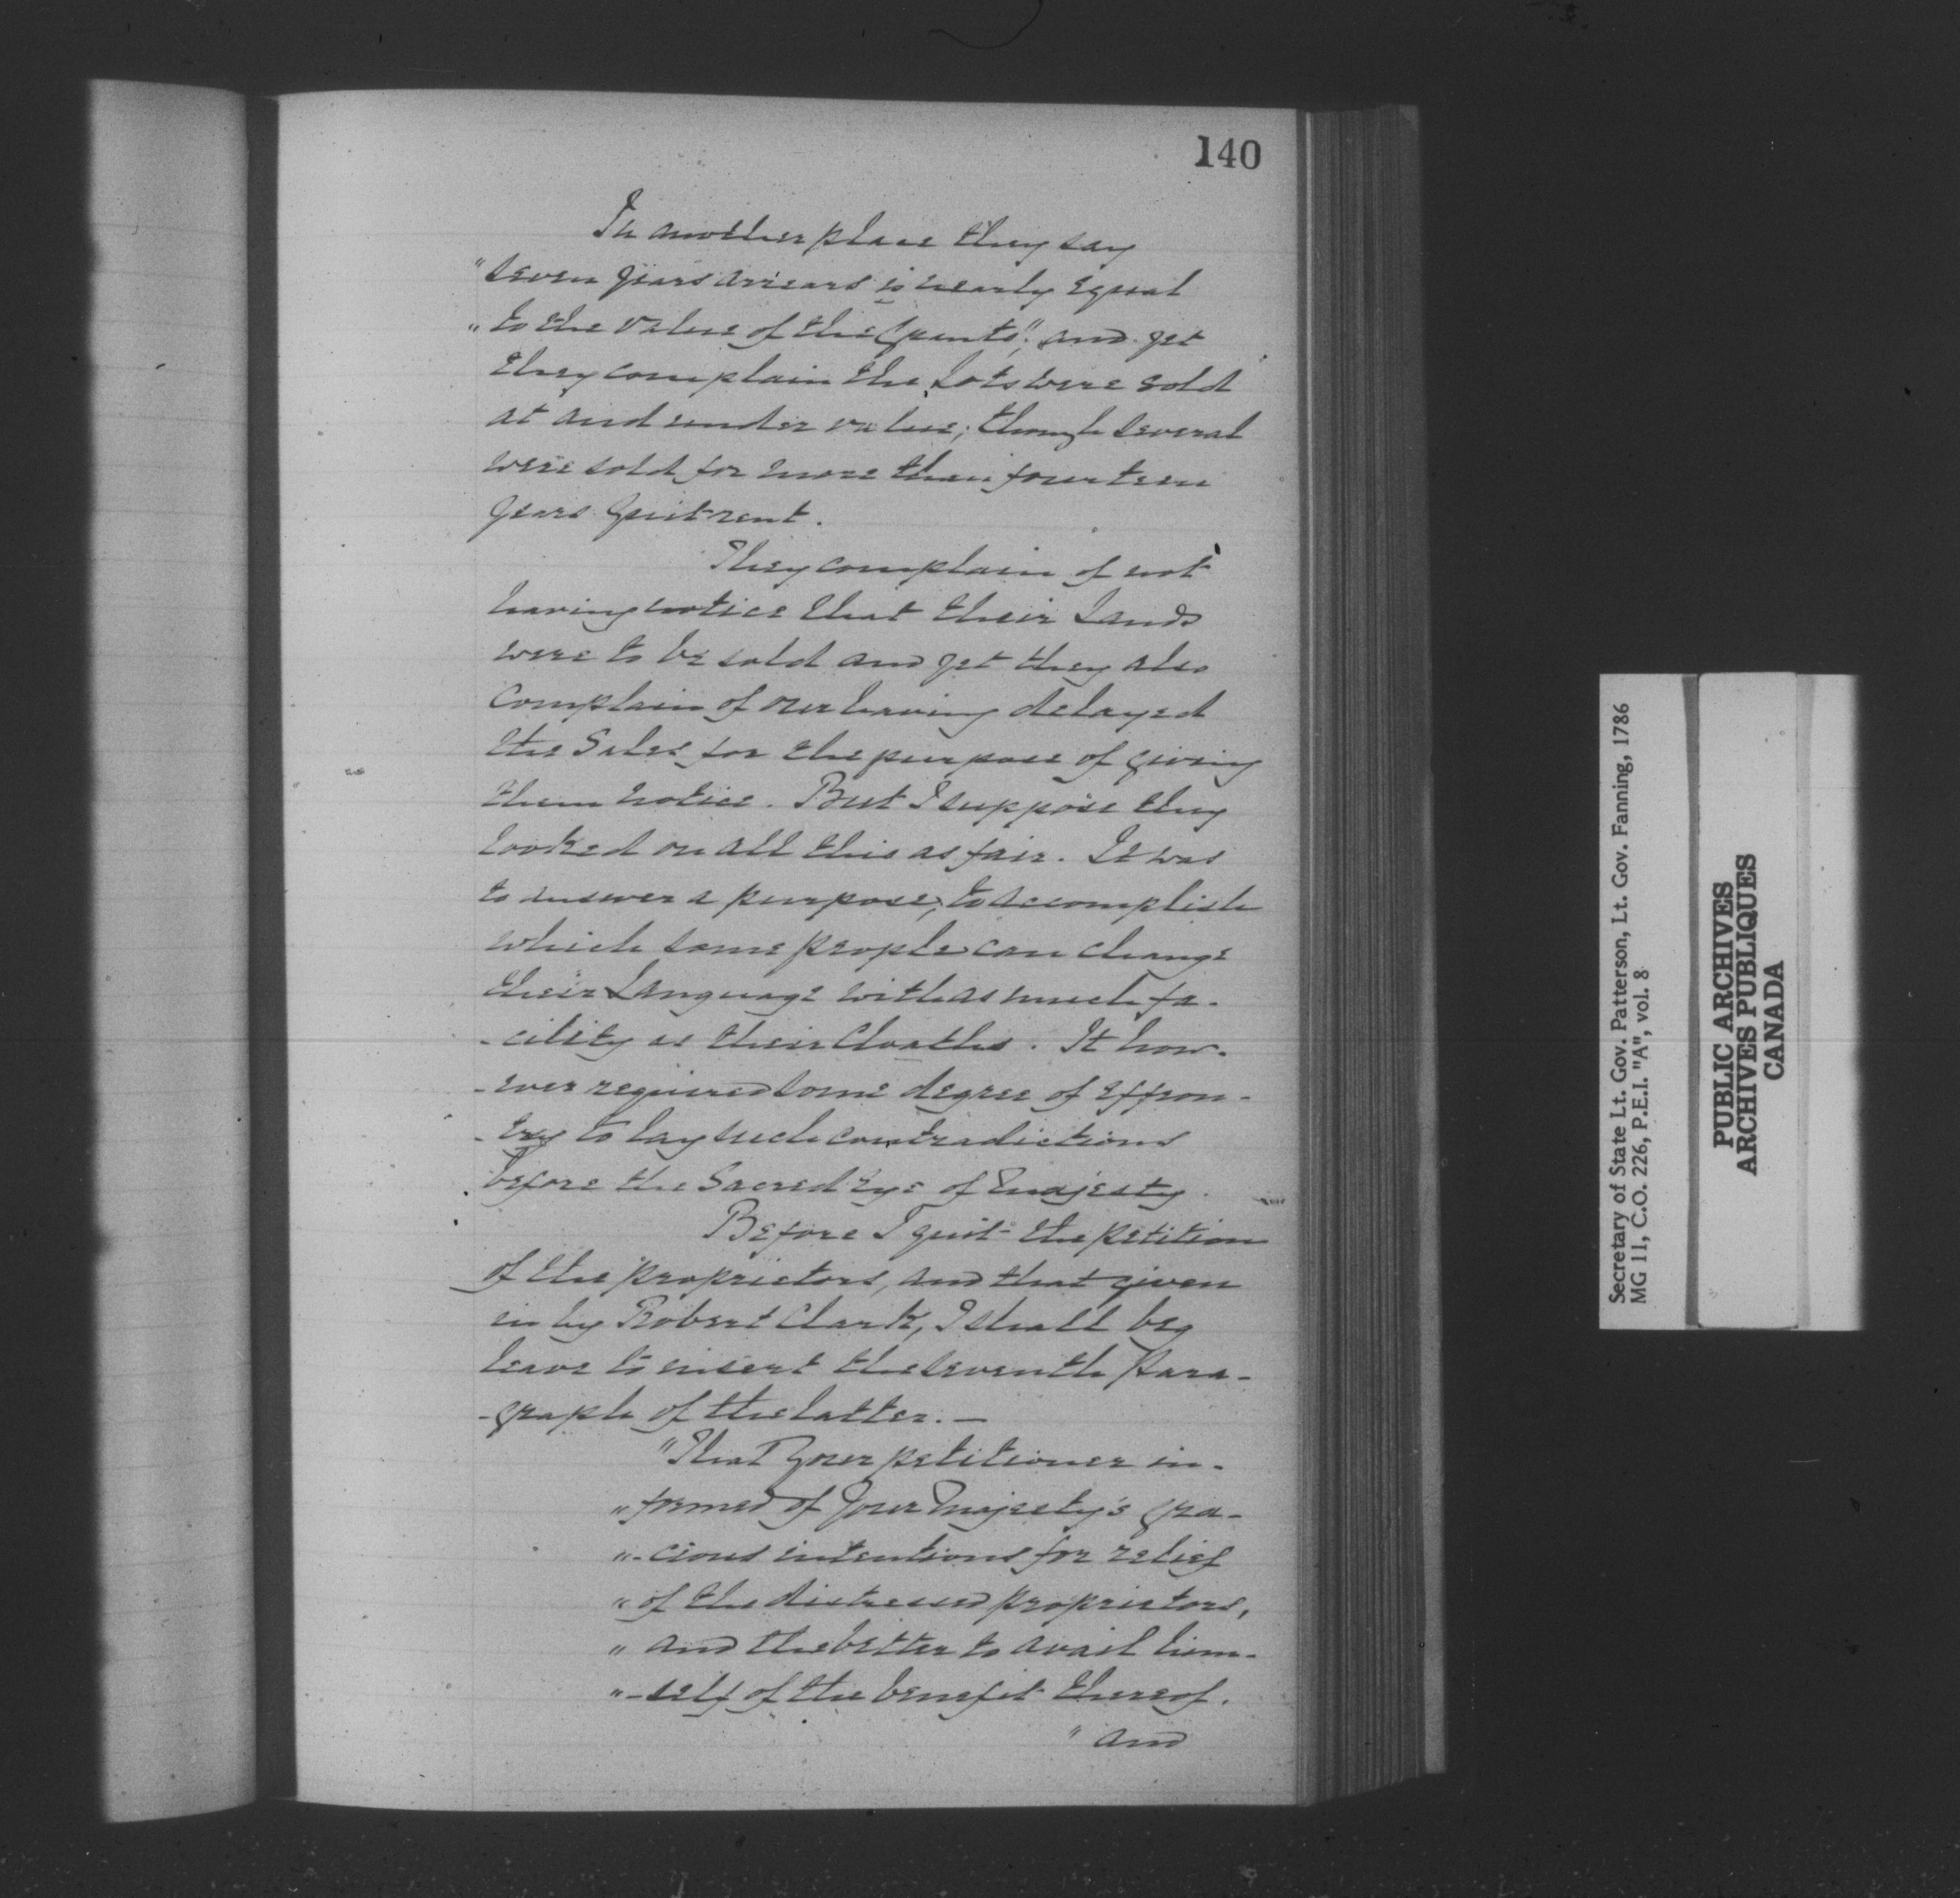 140
In another place they say
"Seven years arrears is nearly equal
"to the value of the Grants", and yet
they complain the Lots were sold
at and under value; though several
were sold for more than fourteen
years Quit-rent.
They complain of not
having notice that their Lands
were to be sold and yet they also
complain of our having delayed
the Sales for the purpose of giving
them notice. But I suppose they
looked on all this as fair. It was
to answer a purpose, to accomplish
which some people can change
their Language with as much fa-
-cility as their Cloaths. It how-
-ever required some degree of effron-
-try to lay such contradictions
before the Sacred Eye of Majesty.
Before I quit the petition
of the proprietors, and that given
in by Robert Clark, I shall beg
leave to insert the seventh Para-
-graph of the latter. —
"That Your petitioner in-
"formed of Your Majesty's gra-
"-cious intentions for relief
"of the distressed proprietors,
"and the better to avail him-
"-self of the benefit thereof.
"and
Secretary of State Lt. Gov. Patterson, Lt. Gov. Fanning, 1786
MG 11, C.O. 226, P.E.I. "A", vol. 8
PUBLIC ARCHIVES
ARCHIVES PUBLIQUES
CANADA